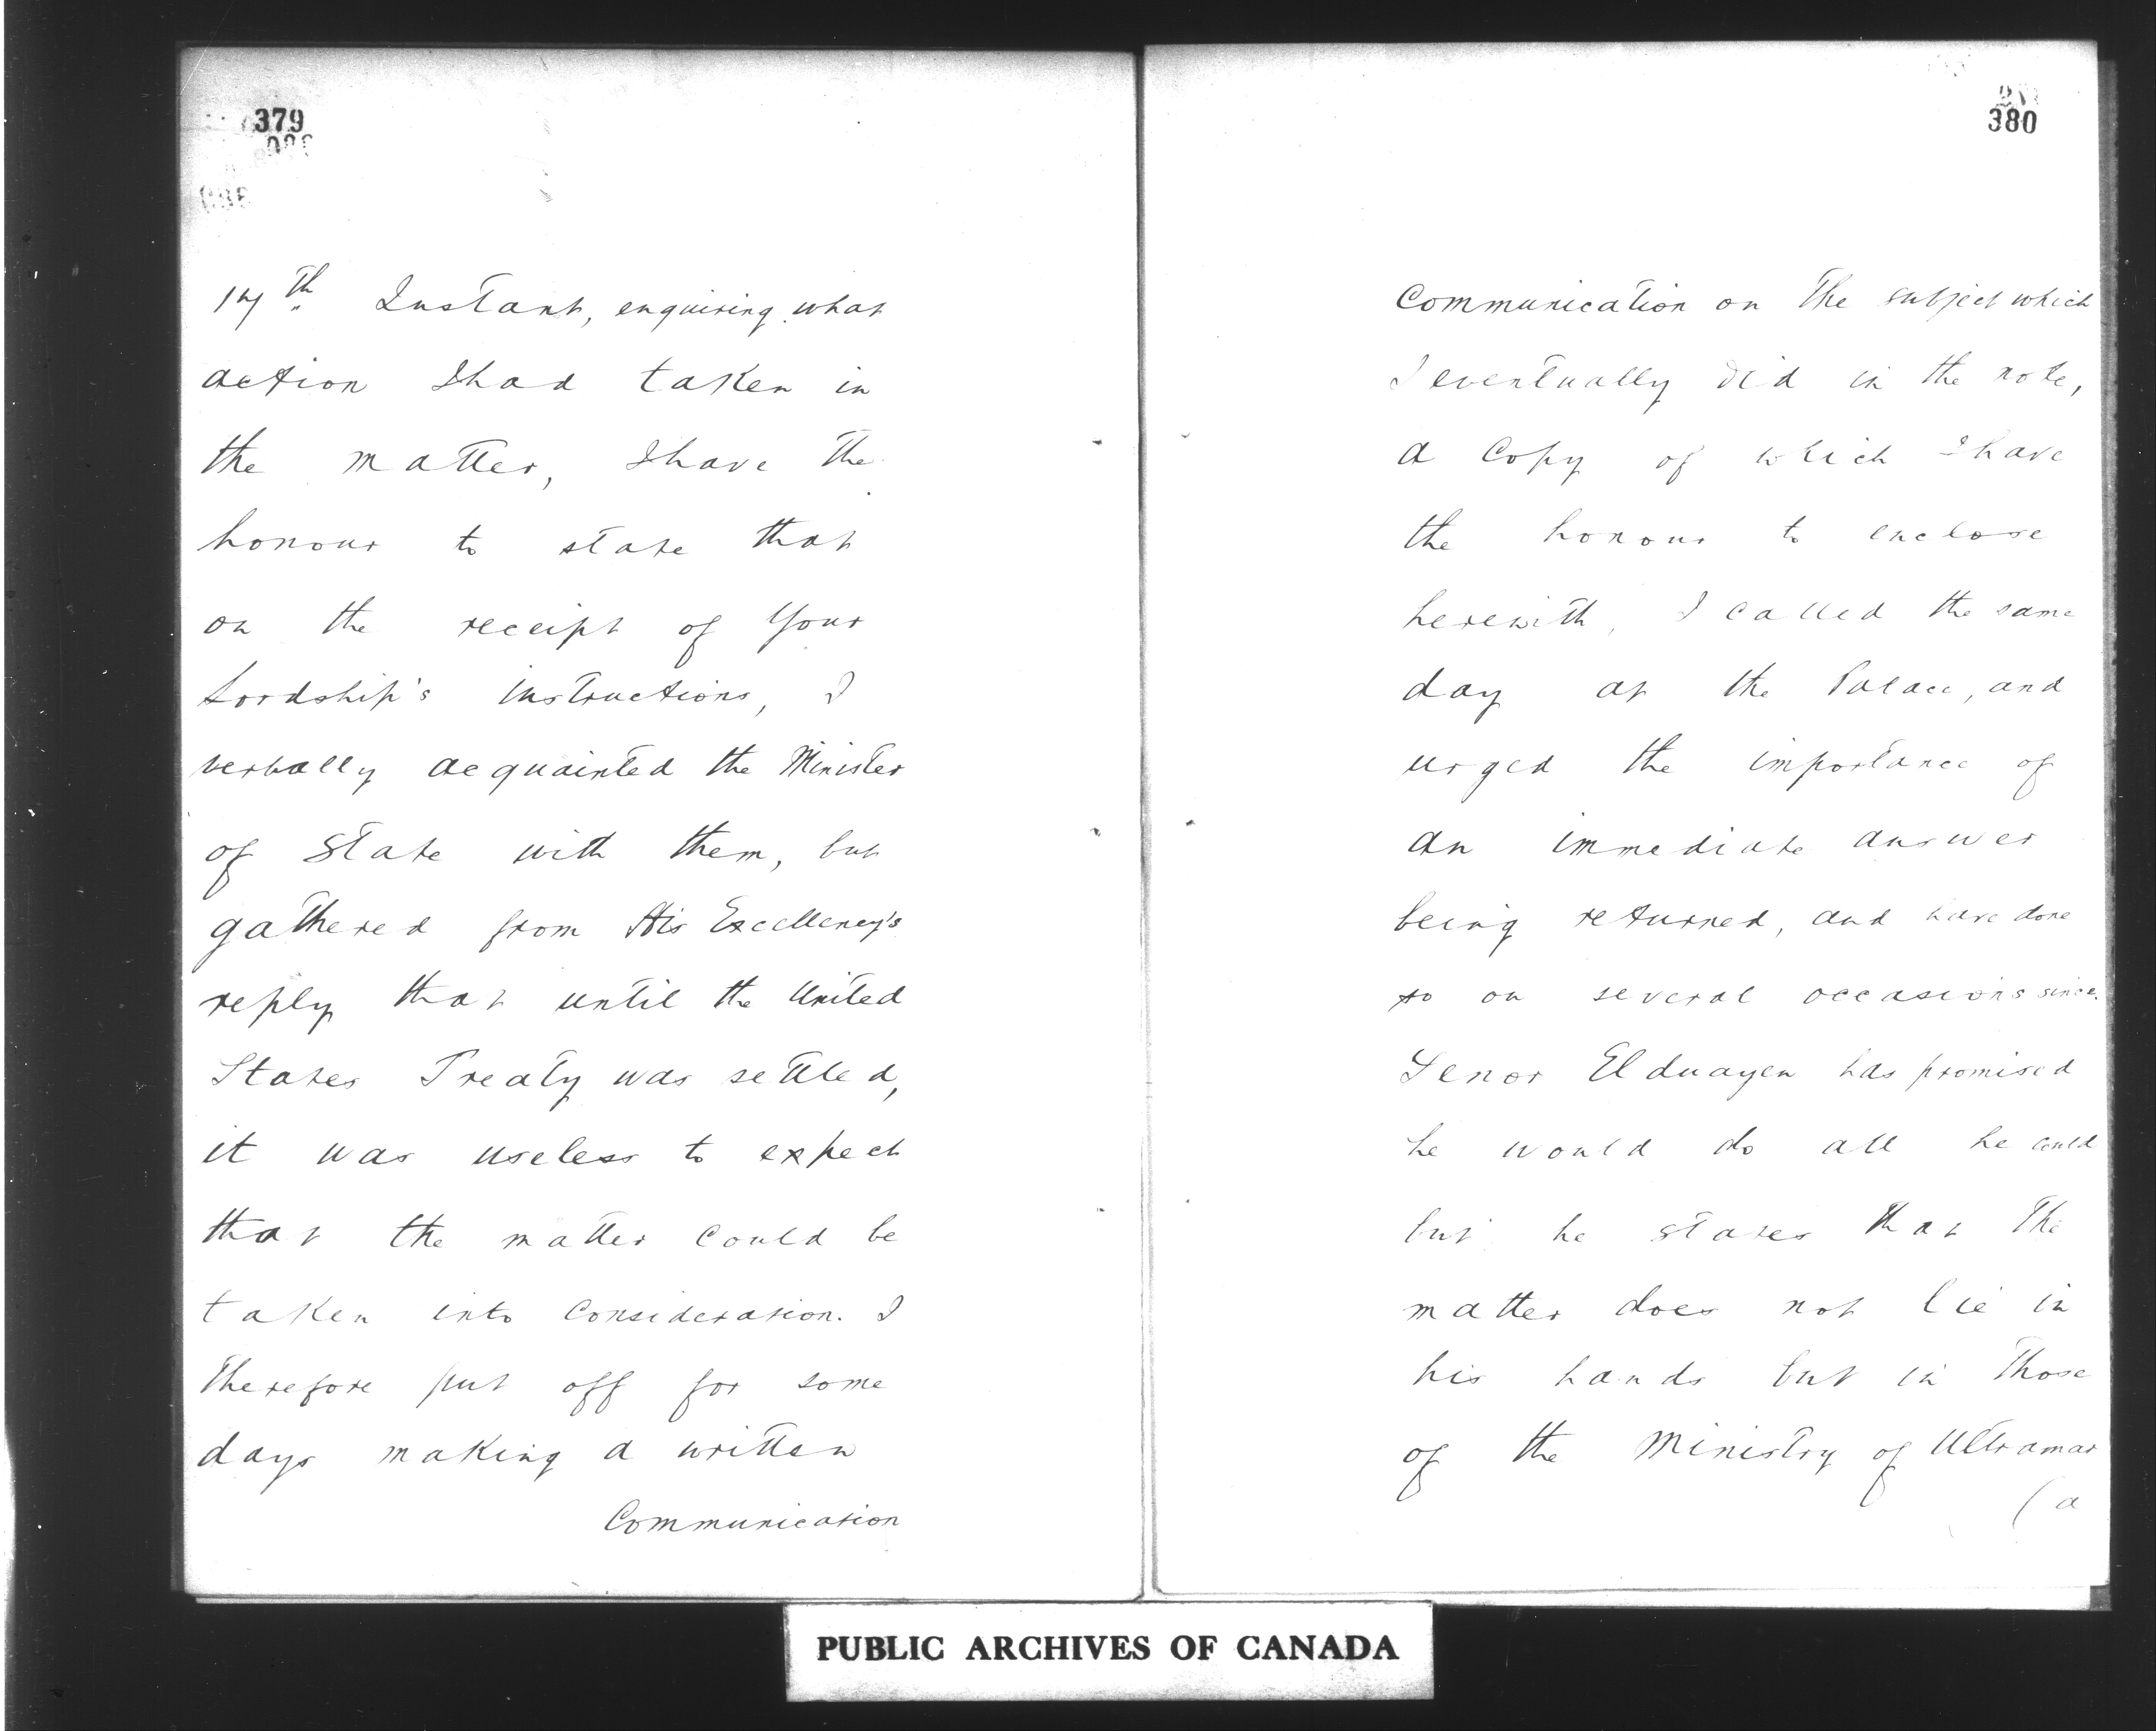 379
17th Instant, enquiring what
action I had taken in
the matter, I have the
honour to state that
on the receipt of Your
Lordship's instructions, I
verbally acquainted the Minister
of State with them, but
gathered from His Excellency's
reply that until the United
States Treaty was settled,
it was useless to expect
that the matter could be
taken into consideration. I
therefore put off for some
days making a written
Communication
380
Communication on the subject which
I eventually did in the note,
a copy of which I have
the honour to enclose
herewith, I called the same
day at the Palace, and
urged the importance of
an immediate answer
being returned, and have done
so on several occasions since.
Senor Elduayen has promised
he would do all he could
but he states that the
matter does not lie in
his hands but in those
of the Ministry of Ultramar
(a
PUBLIC ARCHIVES OF CANADA